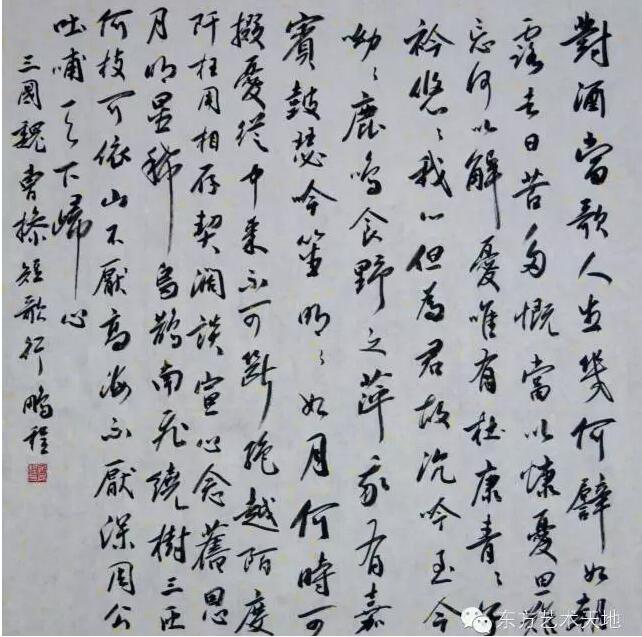 對酒當歌人生幾何譬如朝
露去日苦多慨當以慷憂思難
忘何以解憂唯有杜康青〻子
衿悠〻我心但為君故沉吟至今
呦〻鹿鳴食野之苹我有嘉
賓鼓瑟吹笙明〻如月何時可
掇憂從中來不可斷絕越陌度
阡枉用相存契闊談宴心念舊恩
月明星稀烏鵲南飛繞樹三匝
何枝可依山不厭高海不厭深周公
吐哺天下歸心
三國魏曹操短歌行鵬程
东方艺术天地